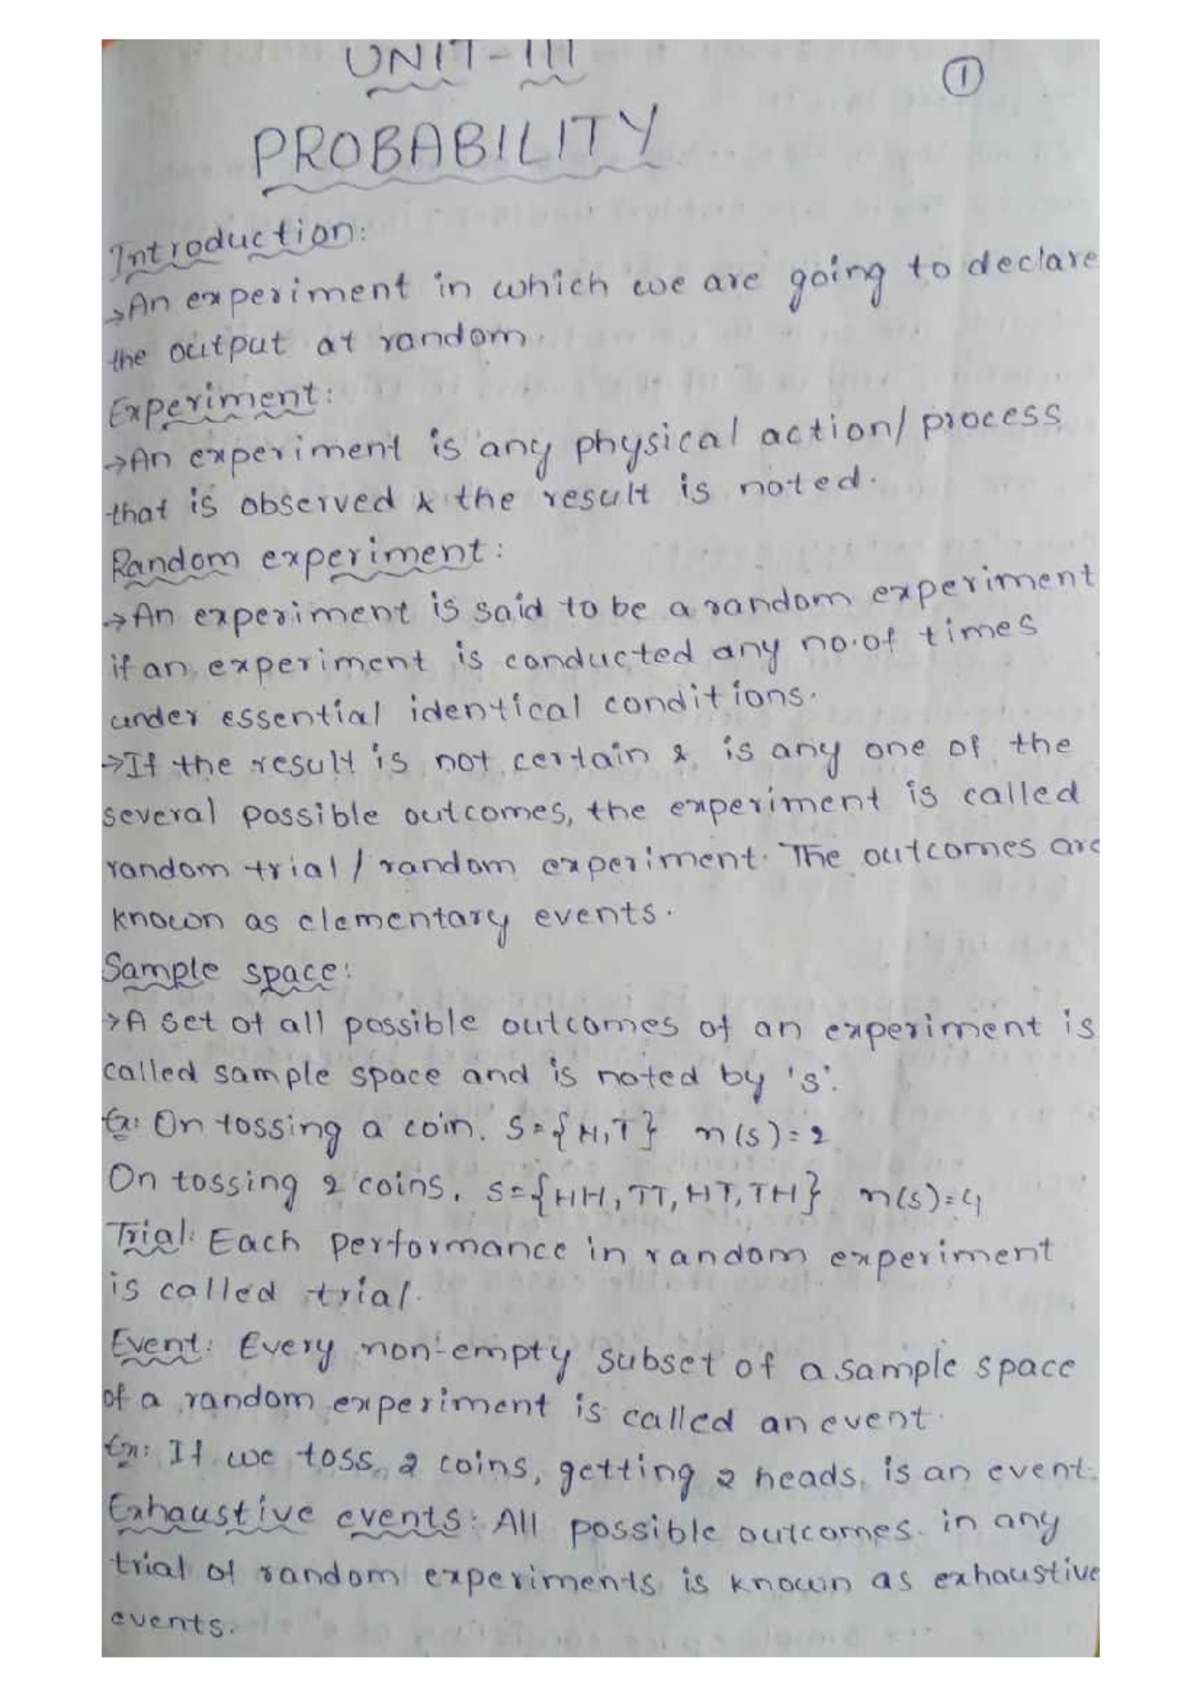 UNIT-III
1
PROBABILITY
Introduction:
→An experiment in which we are going to declare
the output at random.
Experiment:
→An experiment is any physical action/process
that is observed & the result is noted.
Random experiment:
→An experiment is said to be a random experiment
if an experiment is conducted any no.of times
under essential identical conditions.
→If the result is not certain & is any one of the
several possible outcomes, the experiment is called
random trial/random experiment. The outcomes are
known as elementary events.
Sample space:
→A set of all possible outcomes of an experiment is
called sample space and is noted by 's'.
Ex: On tossing a coin. S={H,T} n(s)=2
On tossing 2 coins. S={HH,TT,HT,TH} n(s)=4
Trial: Each performance in random experiment
is called trial.
Event: Every non-empty subset of a sample space
of a random experiment is called an event.
Ex: If we toss 2 coins, getting 2 heads, is an event.
Exhaustive events: All possible outcomes in any
trial of random experiments is known as exhaustive
events.